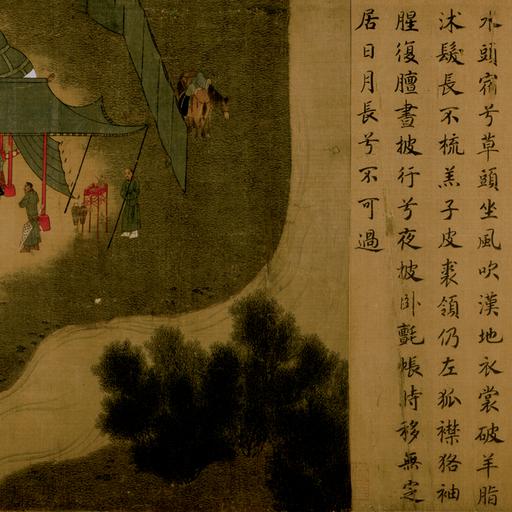 水頭宿兮草頭坐風吹漢地衣裳破羊脂
沐髮長不梳羔子皮裘領仍左狐襟狢袖
腥復膻晝披行兮夜披卧氈帳時移無定
居日月長兮不可過